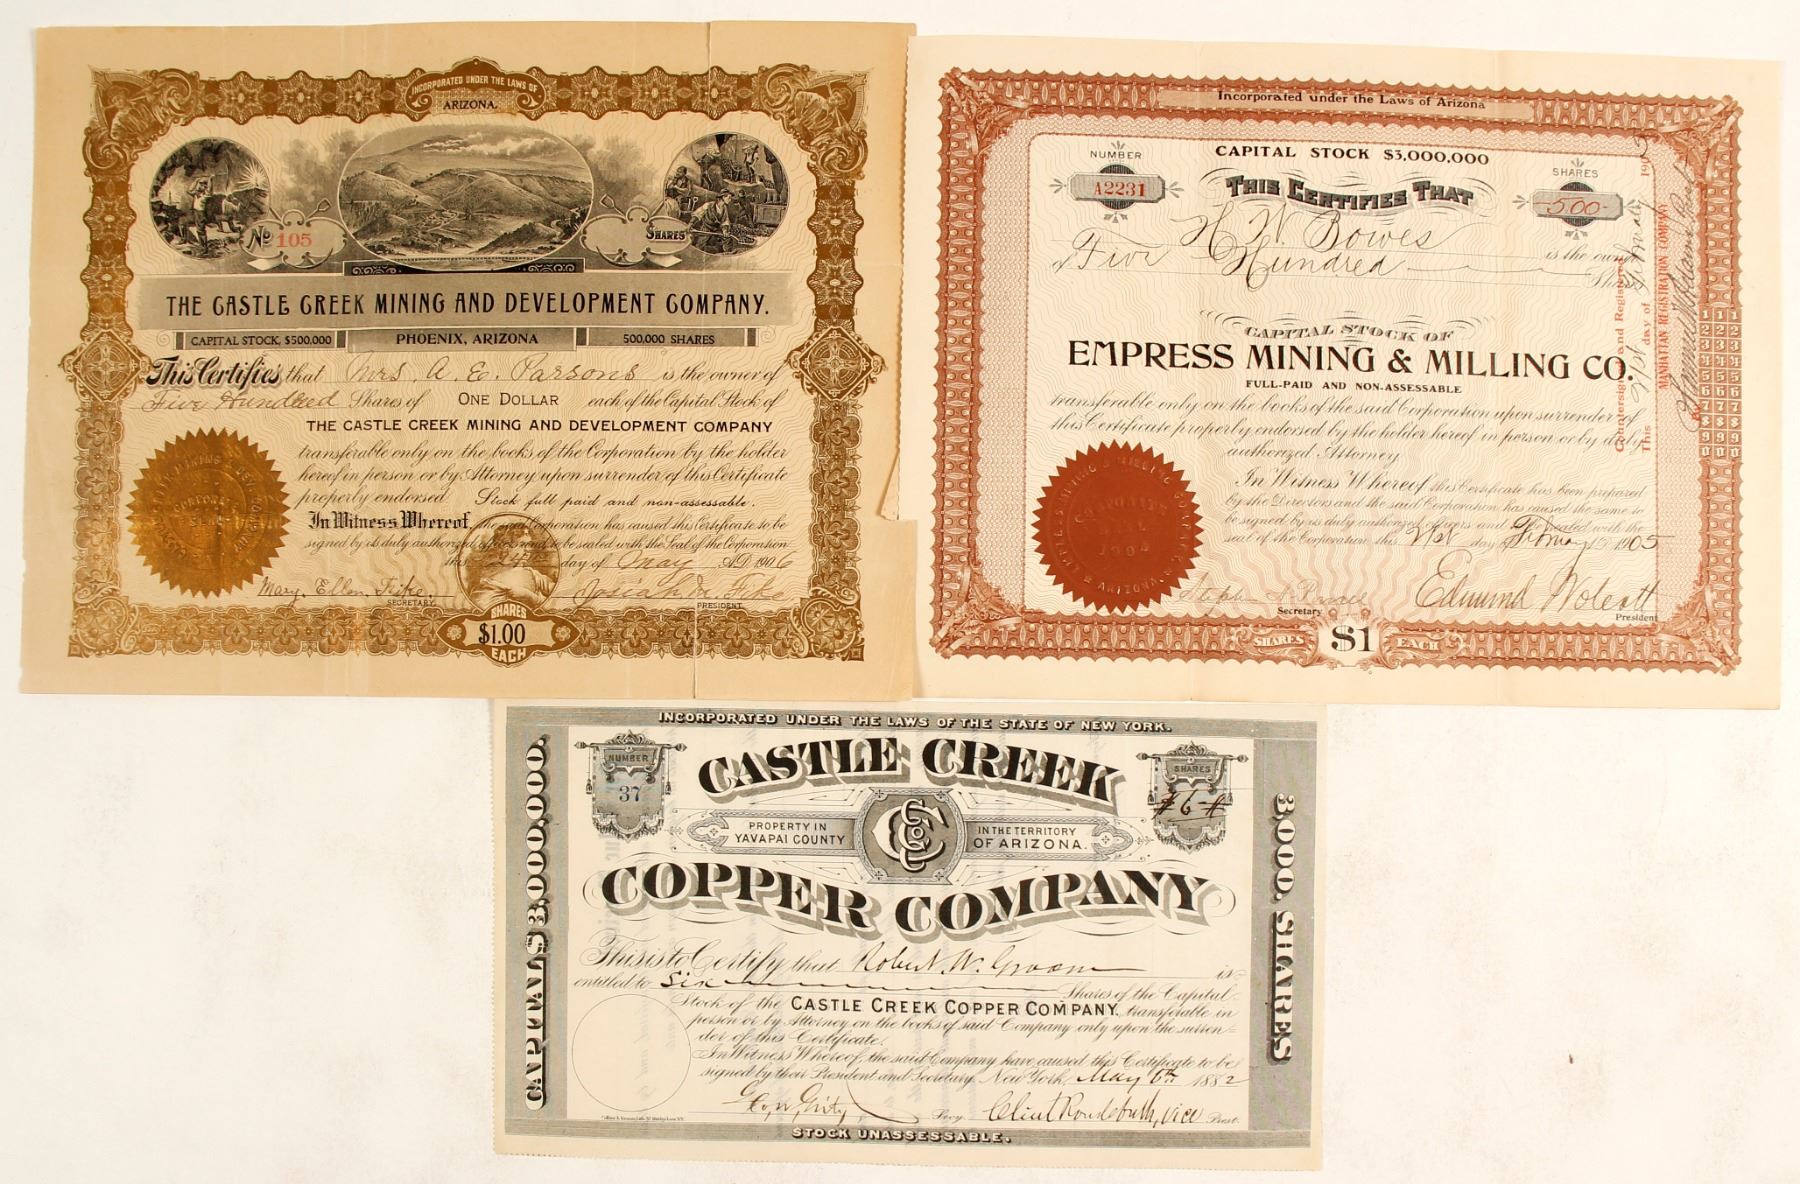 INCORPORATED UNDER THE LAWS OF
ARIZONA.
No 105
SHARES
THE CASTLE CREEK MINING AND DEVELOPMENT COMPANY.
CAPITAL STOCK, $500,000
PHOENIX, ARIZONA
500,000 SHARES
This Certifies that Mrs. A. E. Parsons is the owner of
Five Hundred Shares of ONE DOLLAR each of the Capital Stock of
THE CASTLE CREEK MINING AND DEVELOPMENT COMPANY
transferable only on the books of the Corporation by the holder
hereof in person or by Attorney upon surrender of this Certificate
properly endorsed. Stock full paid and non-assessable.
In Witness Whereof, the said Corporation has caused this Certificate to be
signed by its duly authorized officers and to be sealed with the Seal of the Corporation
this day of May A.D. 1906
Mary Ellen Fike.
SECRETARY
Josiah M. Fike
PRESIDENT
SHARES
$1.00
EACH
Incorporated under the Laws of Arizona
CAPITAL STOCK $3,000,000
NUMBER
A2231
SHARES
500
THIS CERTIFIES THAT
H. W. Bowes
is the owner
of Five Hundred Shares
CAPITAL STOCK OF
EMPRESS MINING & MILLING CO.
FULL-PAID AND NON-ASSESSABLE
transferable only on the books of the said Corporation upon surrender of
this Certificate properly endorsed by the holder hereof in person or by duly
authorized Attorney
In Witness Whereof this Certificate has been prepared
by the Directors and the said Corporation has caused the same to
be signed by its duly authorized officers and to be sealed with the
seal of the Corporation this 21st day of February 1905
Secretary
Edmund Wolcott
President
SHARES $1 EACH
Countersigned and Registered
This 21st day of February 1905
MANHATTAN REGISTRATION COMPANY
By
1 1 1
2 2 2
3 3 3
4 4 4
5 5 5
6 6 6
7 7 7
8 8 8
9 9 9
0 0 0
CORPORATE
1904
ARIZONA
INCORPORATED UNDER THE LAWS OF THE STATE OF NEW YORK.
NUMBER
37
SHARES
#6#
CASTLE CREEK
PROPERTY IN
YAVAPAI COUNTY
CCCo
IN THE TERRITORY
OF ARIZONA.
COPPER COMPANY
CAPITAL $3,000,000.
3000. SHARES
This is to Certify that Robert W. Groom is
entitled to Six Shares of the Capital
Stock of the CASTLE CREEK COPPER COMPANY, transferable in
person or by Attorney on the books of said Company only upon the surren-
der of this Certificate.
In Witness Whereof, the said Company have caused this Certificate to be
signed by their President and Secretary. New York, May 6th 1882
Secy. Clint Roudebush, Vice Prest.
STOCK UNASSESSABLE.